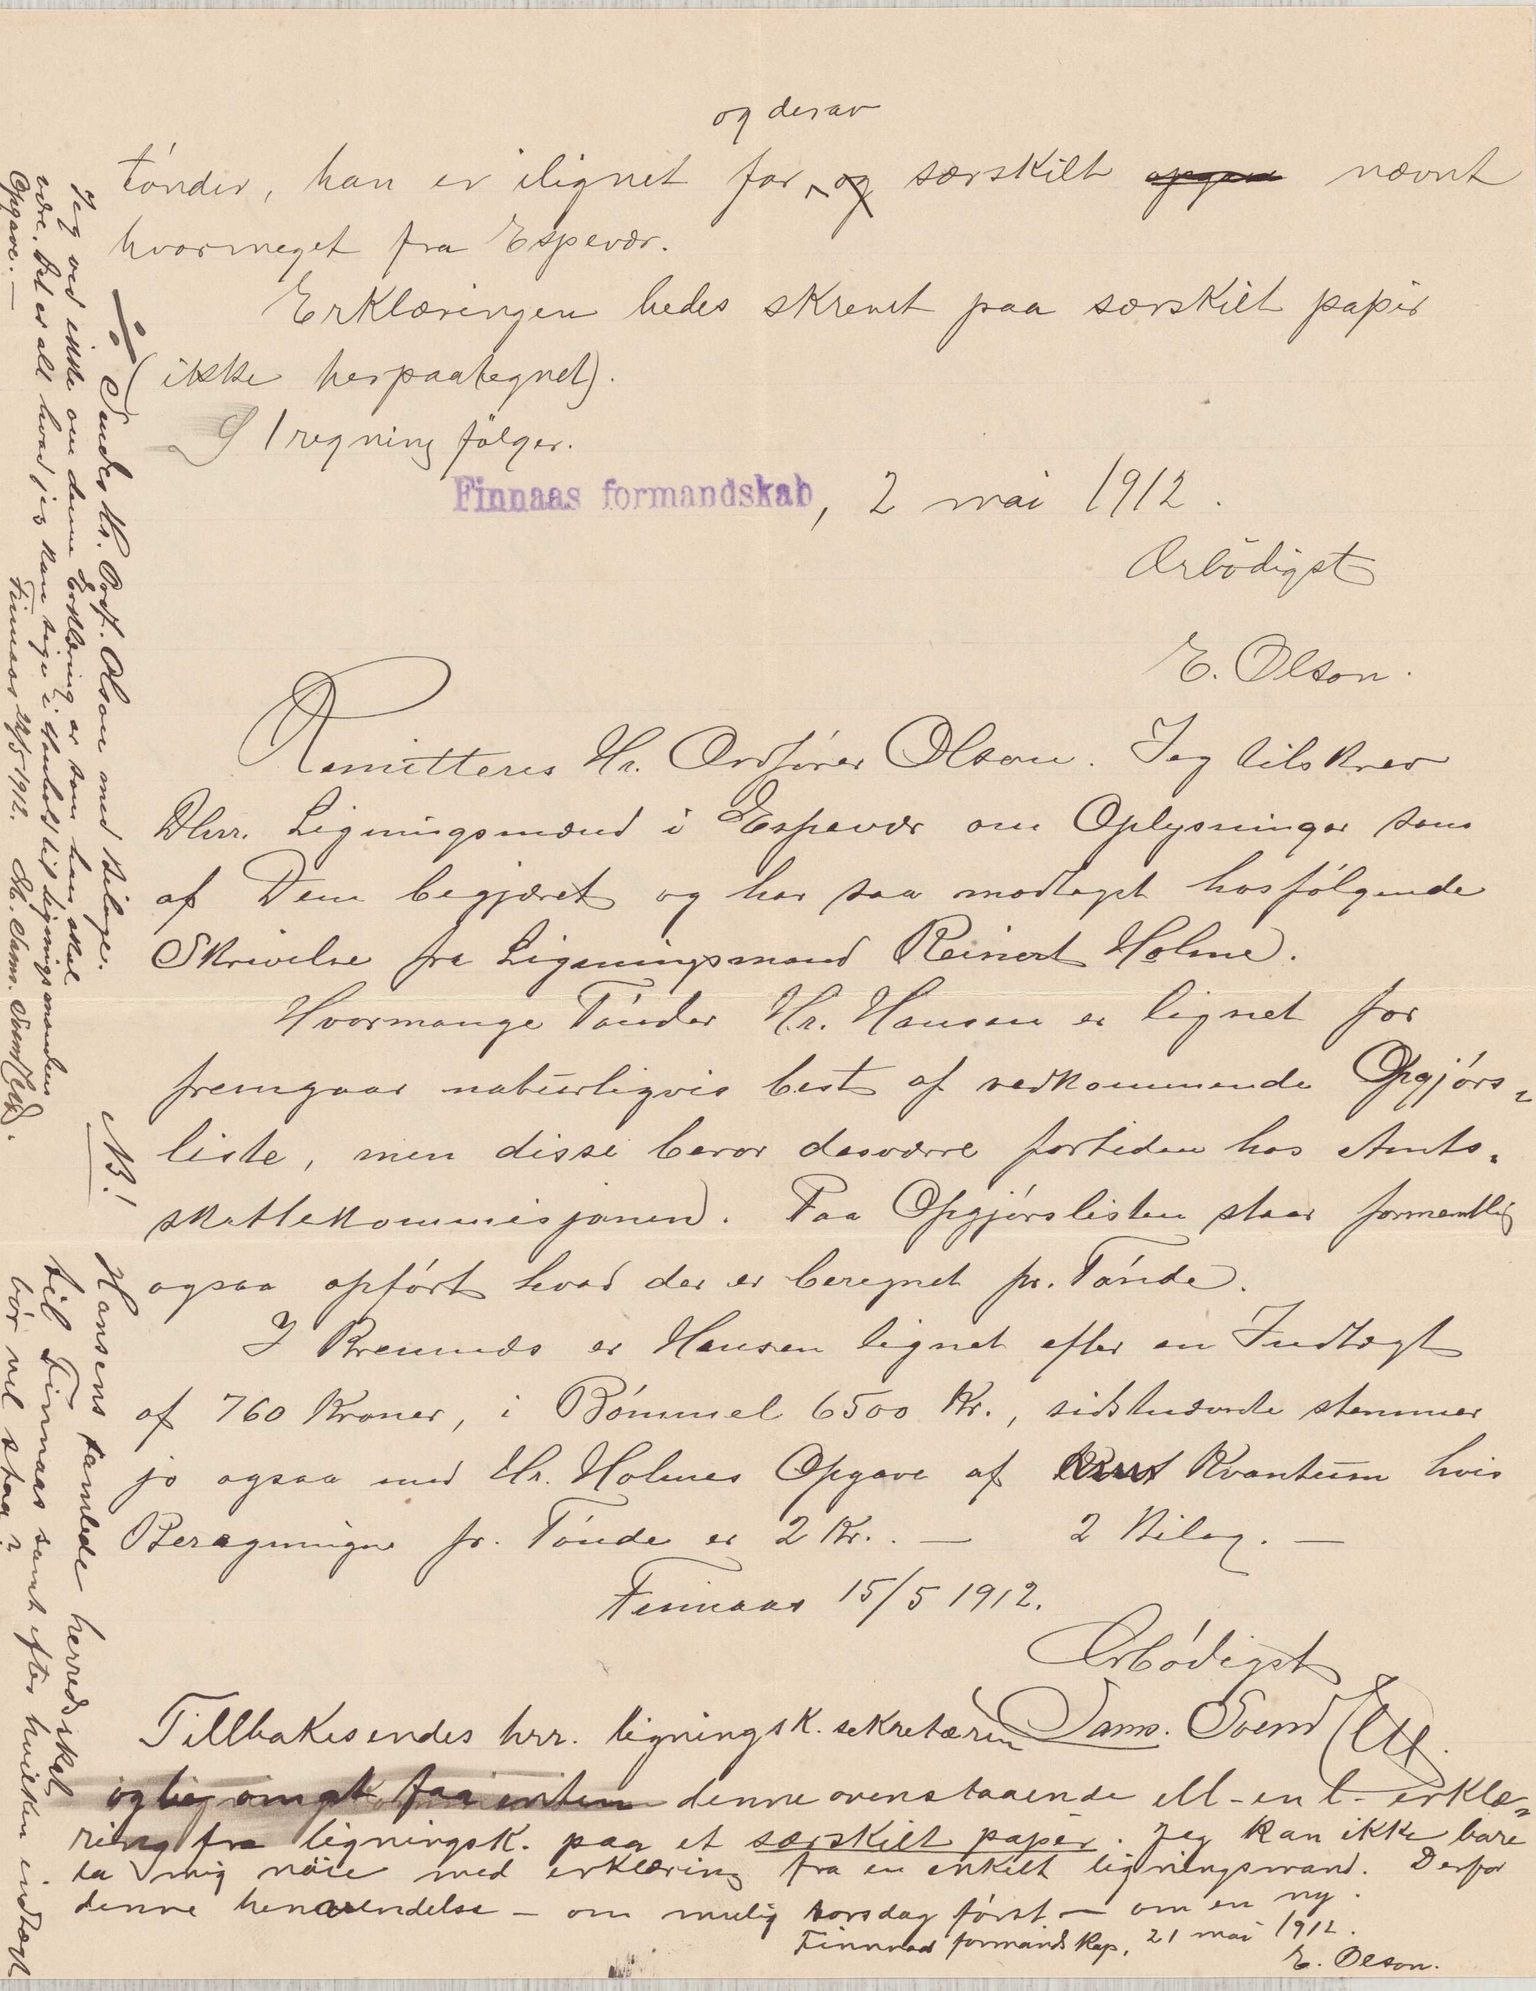 og derav
tönder, han er ilignet for, og særskilt nævnt
hvormeget fra Espevær.
Erklæringen bedes skrevet paa særskilt papir
(ikke herpaategnet).
1 regning følger.
Finnaas formandskab, 2 mai 1912.
Ærbödigst
E. Olson.
Remitteres Hr. Ordfører Olson. Jeg tilskrev
Dhrr. Ligningsmænd i Espevær om Oplysninger som
af Dem begjæret og har saa modtaget hosfølgende
Skrivelse fra Ligningsmand Reinert Holme.
Hvormange Tønder Hr. Hansen er lignet for
fremgaar naturligvis best af vedkommende Opgjørs-
liste, men disse beror desværre fortiden hos Amts-
skattekommisjonen. Paa Opgjørslisten staar formentlig
ogsaa opført hvad der er beregnet pr. Tønde.
I Bremnæs er Hansen lignet efter en Indtægt
af 760 Kroner, i Bømmel 6500 Kr., sidstnævnte stemmer
jo ogsaa med Hr. Holmes Opgave af Kvantum hvis
Beregningen pr. Tønde er 2 Kr. — 2 Bilag. —
Finnaas 15/5 1912.
Ærbødigst
Sams. Svend
Tillbakesendes hrr. ligningsk. sekretæren
og bes om at faa enten denne ovenstaaende ell. en l. erklæ-
ring fra ligningsk. paa et særskilt papir. Jeg kan ikke bare
ta mig nöie med erklæring fra en enkelt ligningsmand. Derfor
denne henvendelse — om mulig torsdag först — om en ny.
Finnaas formandskap, 21 mai 1912.
E. Olson.
Sendes Hr. Ordf. Olson med Bilage.
Jeg ved ikke om denne Erklæring er som han skal
være. Det er alt hvad jeg kan sige i Henhold til Ligningsmandens
Opgave. —
Finnaas 22/5 1912.
NB!
Hansens samlede herredsskat
til Finnaas samt efter hvilken indtægt
bör vel staa?